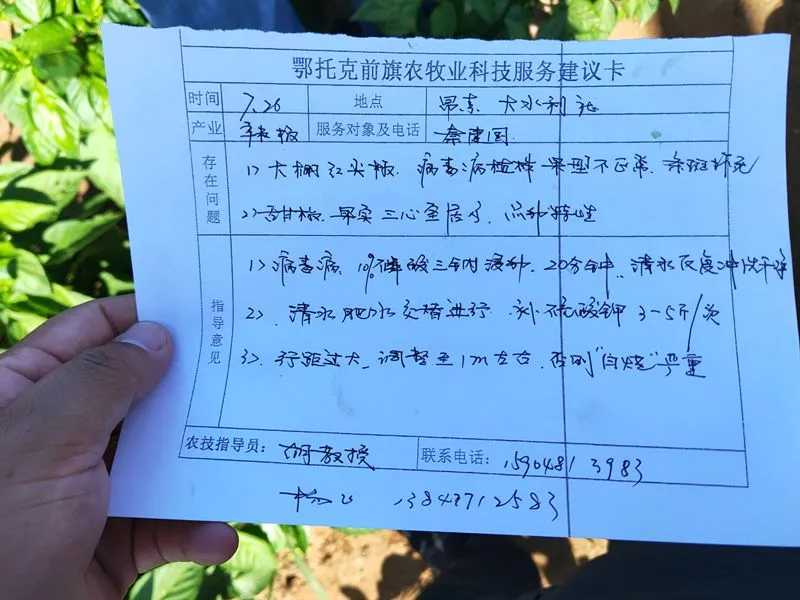 鄂托克前旗农牧业科技服务建议卡
时间 7.26 地点 昂素 大水利社
产业 辣椒 服务对象及电话 秦建国
存在问题
1) 大棚红尖椒 病毒病植株 果型不正常
2) 甘椒 果实三心室居多 品种特性
指导意见
1) 病毒病 10%磷酸三钠浸种 20分钟 清水反复冲洗干净
2) 清水肥水交替进行 补硫酸钾 3-5斤/次
3) 行距过大 调整至1m左右 否则"日烧"严重
农技指导员: 教授 联系电话: 15904813983
13847712583